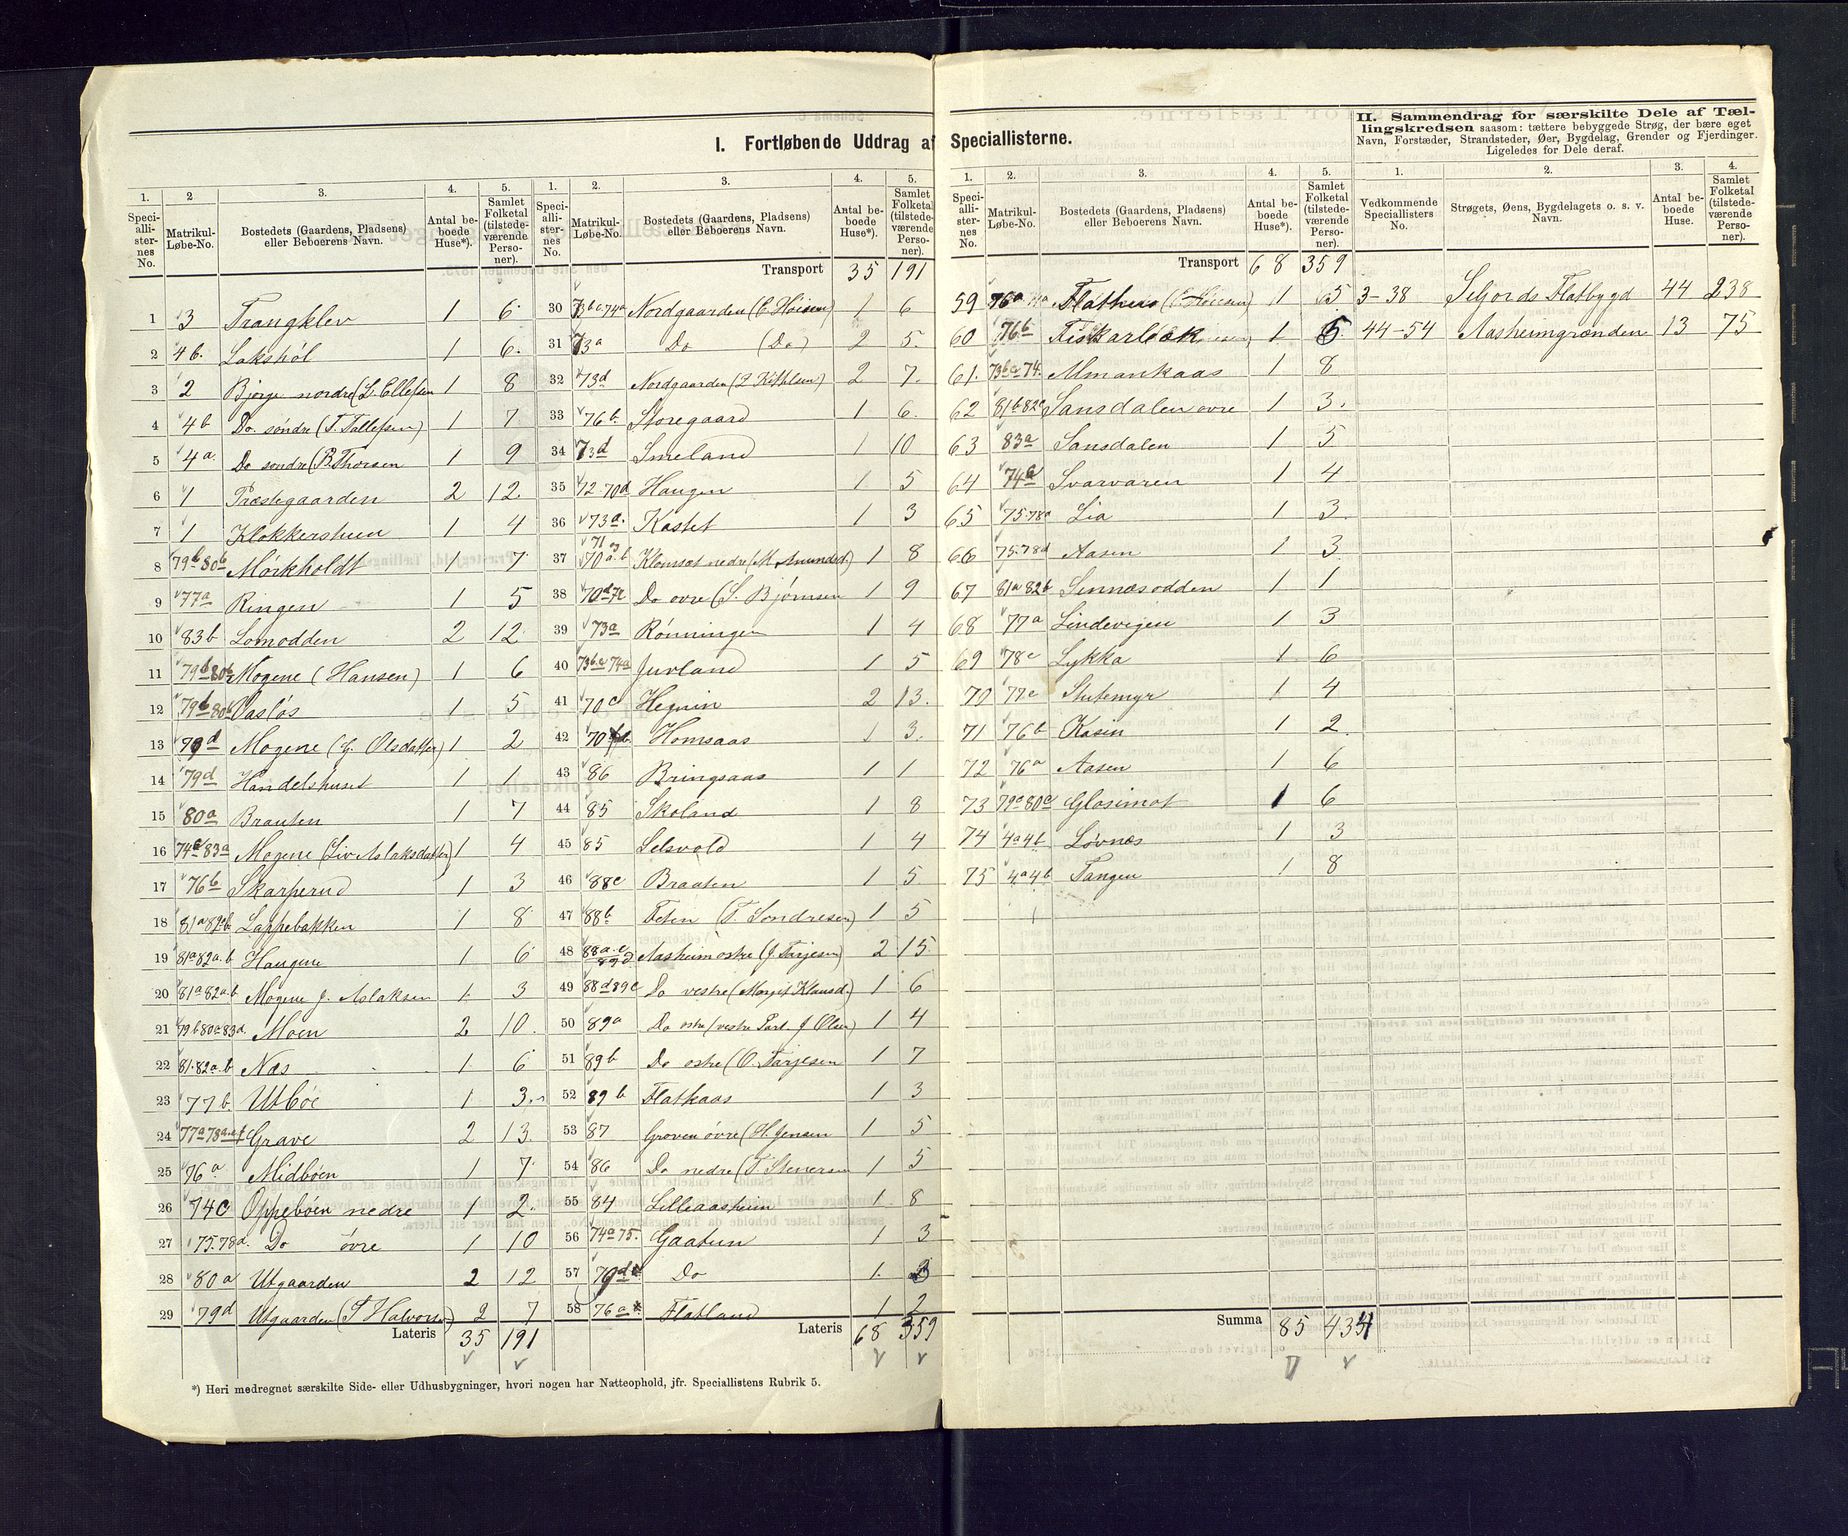 I. Fortløbende Uddrag af Speciallisterne.
1. 2. 3. 4. 5.
Speciallisternes No. Matrikul-Løbe-No. Bostedets (Gaardens, Pladsens) eller Beboerens Navn. Antal beboede Huse*). Samlet Folketal (tilstedeværende Personer).
1 3 Trangklev 1 6
2 4b. Lakshøl 1 6.
3 2 Bjørge nordre (S. Ellefsen 1 8
4 4b Do. søndre (T. Tallefsen) 1 7
5 4a. Do søndre (B. Thorsen 1 9
6 1 Præstegaarden 2 12.
7 1 Klokkersheen 1 4
8 79b 80b Mørkholdt 1 7
9 77a Ringen 1 5
10 83b Lomodden 2 12.
11 79b 80b Mogene (Hansen) 1 6
12 79b 80b Vasløs 1 5
13 79d Mogene (G. Olsdatter) 1 2
14 79d Handelshuset 1 1
15 80a Brauten 1 7
16 74c 83a Mogene (Liv Aslaksdatter) 1 4
17 76b Skarperud 1 3
18 81a 82b Lappebakken 1 8
19 81a 82a.b Haugene 1 6
20 81a 82a.b Mogene J. Aslaksen 1. 3
21 79b 80a 83d. Moen 2 10.
22 81.82a.b Næs 1 6
23 77b Utbøe 1 3.
24 77a 78a.e.f Grave 2 13.
25 76a Midbøen 1 7
26 74c Oppebøen nedre 1 2.
27 75.78d. Do øvre 1 10
28 80a Utgaarden 2 12
29 79d Utgaarden (T Halvorsen) 2 7
Lateris 35 191
*) Heri medregnet særskilte Side- eller Udhusbygninger, hvori nogen har Natteophold, jfr. Speciallistens Rubrik 5.
1. 2. 3. 4. 5.
Speciallisternes No. Matrikul-Løbe-No. Bostedets (Gaardens, Pladsens) eller Beboerens Navn. Antal beboede Huse*). Samlet Folketal (tilstedeværende Personer).
Transport 35 191
30 73b c 74a Nordgaarden (E Høisen) 1 6
31 73a Do (Do) 2 5.
32 73d Nordgaarden (L Kittilsen) 2 7.
33 76b. Storegaard 1 6.
34 73d Smeland 1 10
35 72 70d Haugen 1 5
36 73a. Kastet 1 3
37 71 og 70a.b Klomset nedre (M. Amundsd.) 1 8
38 70d 72 Do øvre (S. Bjørnsen 1 9
39 73a Rønningen 1 4
40 73b.c 74a Juvland 1 5
41 70c Hegnin 2 13.
42 70b Homsaas 1 3.
43 86 Bringsaas 1 1
44 85 Skoland 1 8
45 85 Selsvold 1 4
46 88c Braaten 1 5.
47 88b Teten (T. Sondresen) 1 5
48 88a.c 89d Aasheim østre (J Tarjesen) 2 15.
49 88d 89c Do vestre (Margit Klausd.) 1 6
50 89a Do østre (vestre Part. J Olsen) 1 4
51 89b Do østre (O. Tarjesen 1 7
52 89b Flatkaas 1 3
53 87 Groven øvre (H. Jensen 1 5
54 86 Do nedre (T. Stenersen 1 5
55 84 Lilleaasheim 1 8
56 74a 75. Gaatun 1 3
57 79d Do 1. 3
58 76a Flatland 1 2
Lateris 68 359
1. 2. 3. 4. 5.
Speciallisternes No. Matrikul-Løbe-No. Bostedets (Gaardens, Pladsens) eller Beboerens Navn. Antal beboede Huse*). Samlet Folketal (tilstedeværende Personer).
Transport 68 359
59 76a Flathus (E Høisen) 1 5
60 76b Fiskarbæk 1 5
61. 73b.c 74. Mmankaas 1 8
62 81b 82c Sansdalen øvre 1 3.
63 83a Sansdalen 1 5
64 74b Svarvaren 1 4
65 75.78a Lia 1 3.
66 75.78d Aasen 1 3
67 81a 82b Sinnæsodden 1 1
68 77a Lindevigen 1 3
69 78c Lykka 1 6
70 77c Stutemyr 1 4
71 76b Kasin 1 2.
72 76a Aasen 1 6
73 79a 80a Glosimot 1 6
74 4a 4b Løvnæs 1 3
75 4a 4b Tangen 1 8
Summa 85 434
II. Sammendrag for særskilte Dele af Tællingskredsen saasom: tættere bebyggede Strøg, der bære eget Navn, Forstæder, Strandsteder, Øer, Bygdelag, Grender og Fjerdinger. Ligeledes for Dele deraf.
1. 2. 3. 4.
Vedkommende Speciallisters No. Strøgets, Øens, Bygdelagets o. s. v. Navn. Antal beboede Huse. Samlet Folketal (tilstedeværende Personer).
3-38 Seljords Flatbygd 44 238
44-54 Aasheimgrænden 13 75